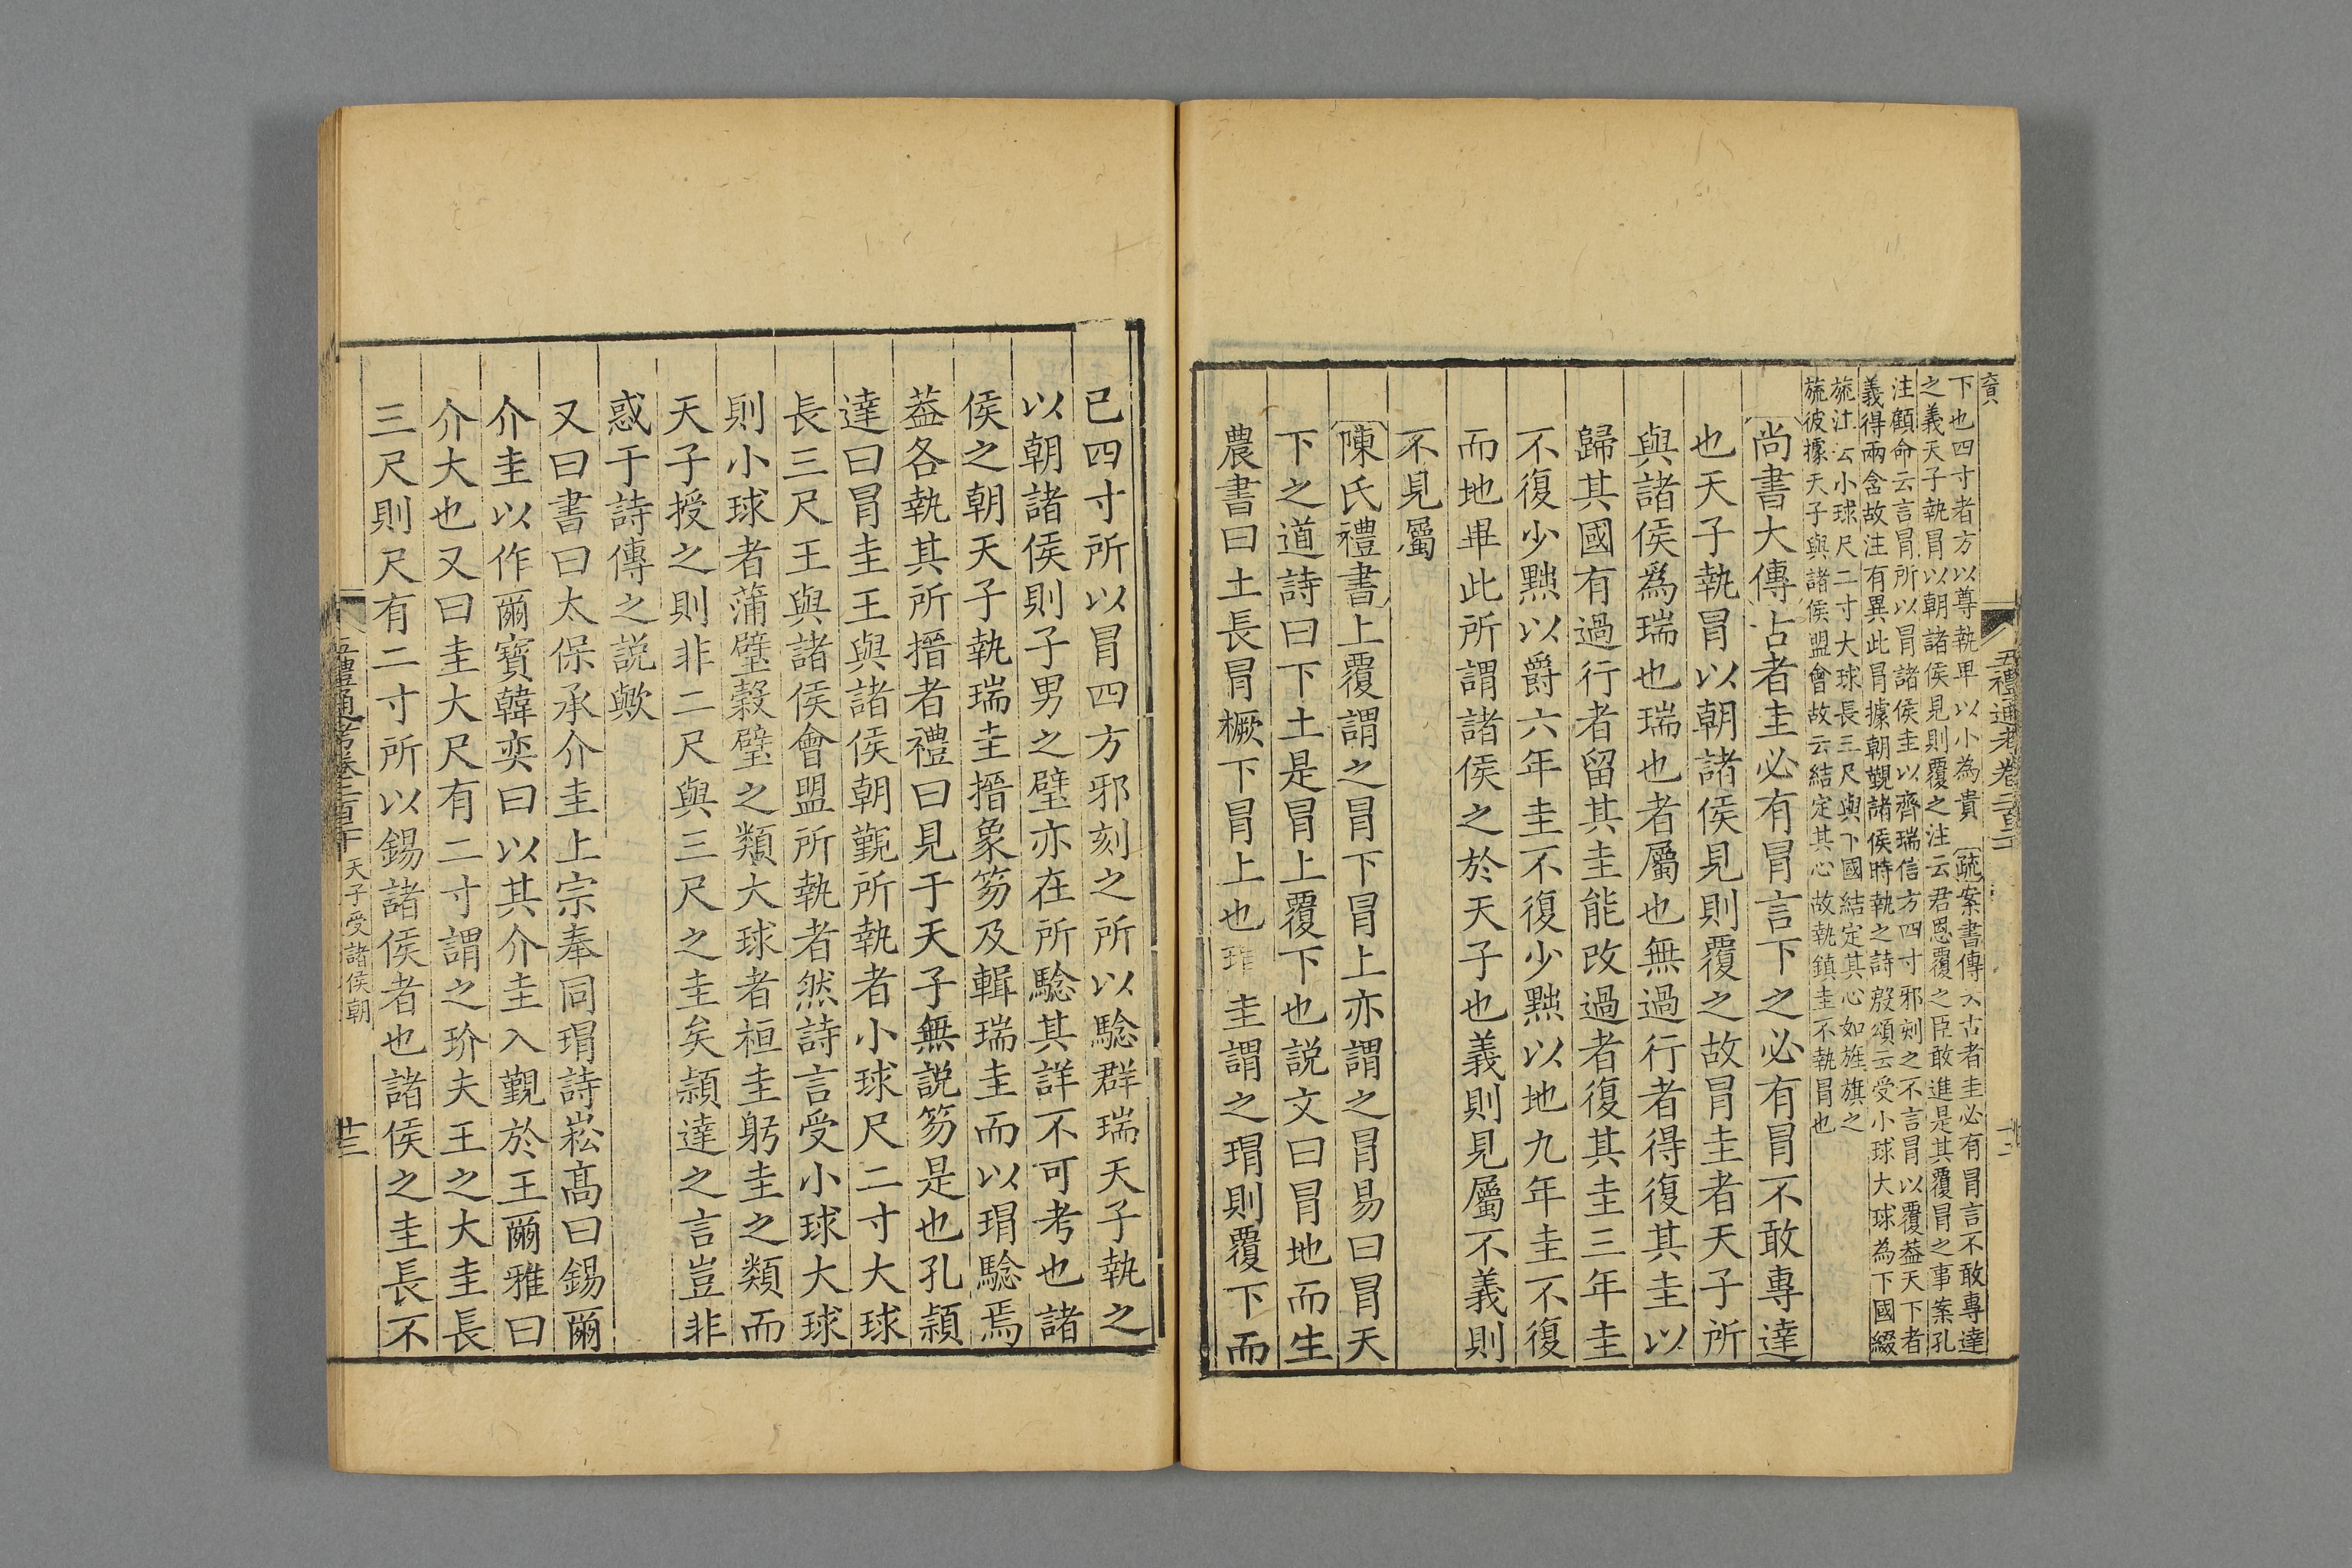 五禮通考卷二百二十
下也四寸者方以尊執卑以小為貴疏案書傳云古者圭必有冒言不敢專達
之義天子執冒以朝諸侯見則覆之注云君恩覆之臣敢進是其覆冒之事案孔
注顧命云言冒所以冒諸侯圭以齊瑞信方四寸邪刻之不言冒以覆葢天下者
義得兩含故注有異此冒據朝覲諸侯時執之詩殷頌云受小球大球為下國綴
旒注云小球尺二寸大球長三尺與下國結定其心如旌旗之
旒彼據天子與諸侯盟會故云結定其心故執鎮圭不執冒也
尚書大傳古者圭必有冒言下之必有冒不敢專達
也天子執冒以朝諸侯見則覆之故冒圭者天子所
與諸侯爲瑞也瑞也者屬也無過行者得復其圭以
歸其國有過行者留其圭能改過者復其圭三年圭
不復少黜以爵六年圭不復少黜以地九年圭不復
而地畢此所謂諸侯之於天子也義則見屬不義則
不見屬
陳氏禮書上覆謂之冒下冒上亦謂之冒易曰冒天
下之道詩曰下土是冒上覆下也説文曰冒地而生
農書曰土長冒橛下冒上也 圭謂之瑁則覆下而
已四寸所以冒四方邪刻之所以驗群瑞天子執之
以朝諸侯則子男之璧亦在所驗其詳不可考也諸
侯之朝天子執瑞圭搢象笏及輯瑞圭而以瑁驗焉
葢各執其所搢者禮曰見于天子無説笏是也孔頴
達曰冒圭王與諸侯朝覲所執者小球尺二寸大球
長三尺王與諸侯會盟所執者然詩言受小球大球
則小球者蒲璧榖璧之類大球者桓圭躬圭之類而
天子授之則非二尺與三尺之圭矣頴達之言豈非
惑于詩傳之説歟
又曰書曰太保承介圭上宗奉同瑁詩崧髙曰錫爾
介圭以作爾寶韓奕曰以其介圭入覲於王爾雅曰
介大也又曰圭大尺有二寸謂之玠夫王之大圭長
三尺則尺有二寸所以錫諸侯者也諸侯之圭長不
五禮通考卷二百二十 天子受諸侯朝 十三